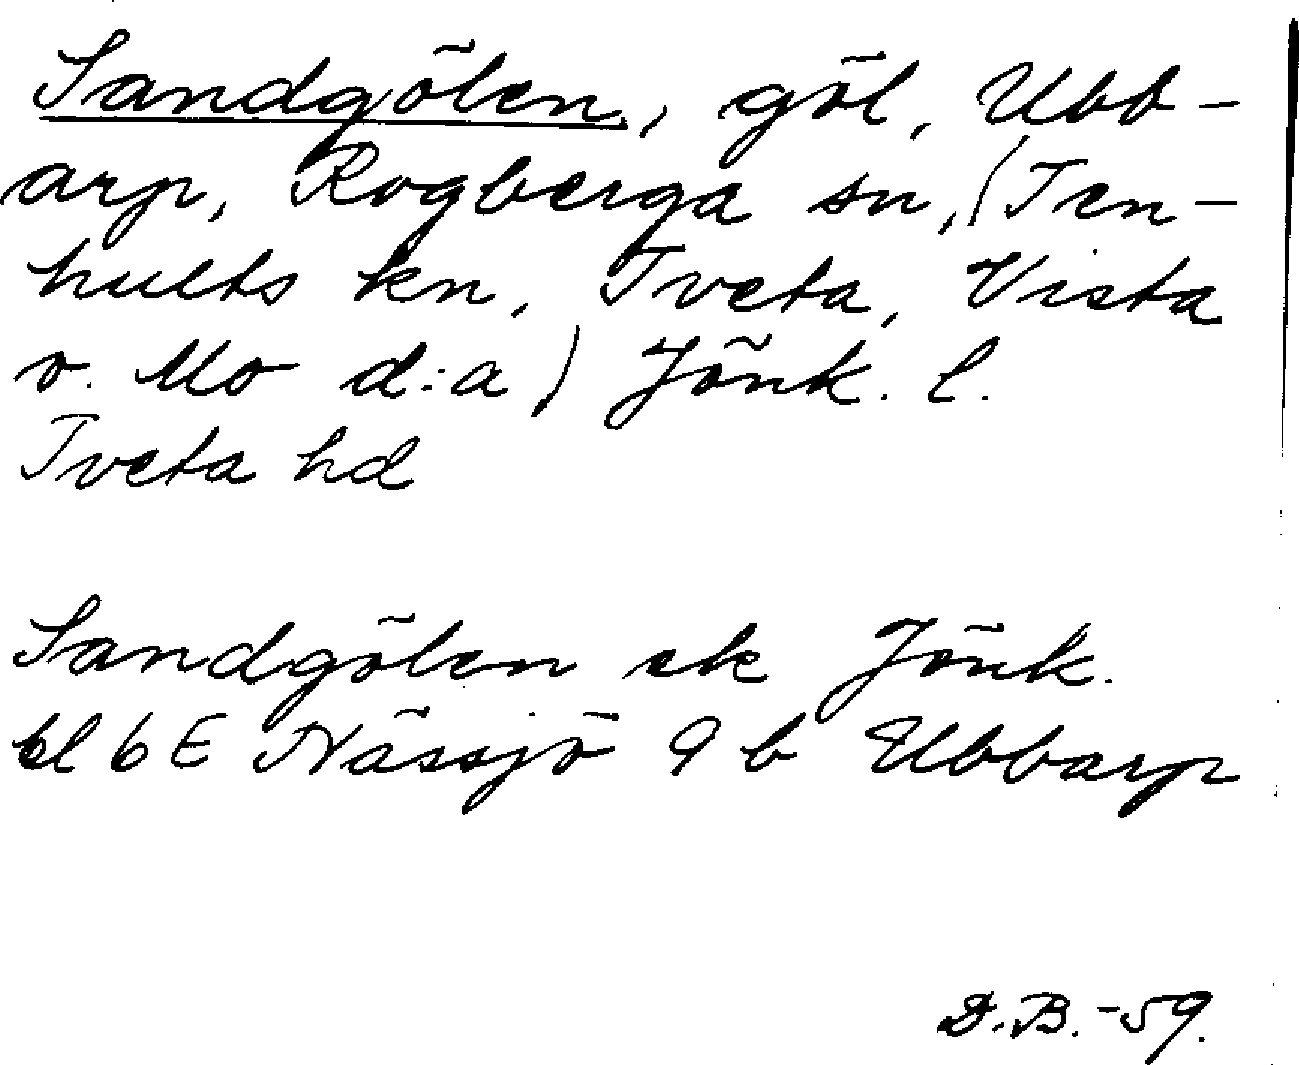 Sandgölen, göl, Ubb-
arp, Rogberga sn, (Ten-
hults kn, Tveta, Vista
o. Mo d:a) Jönk. l.
Tveta hd
Sandgölen ek Jönk.
bl 6 E Nässjö 9 b Ubbarp
D.B.-59.